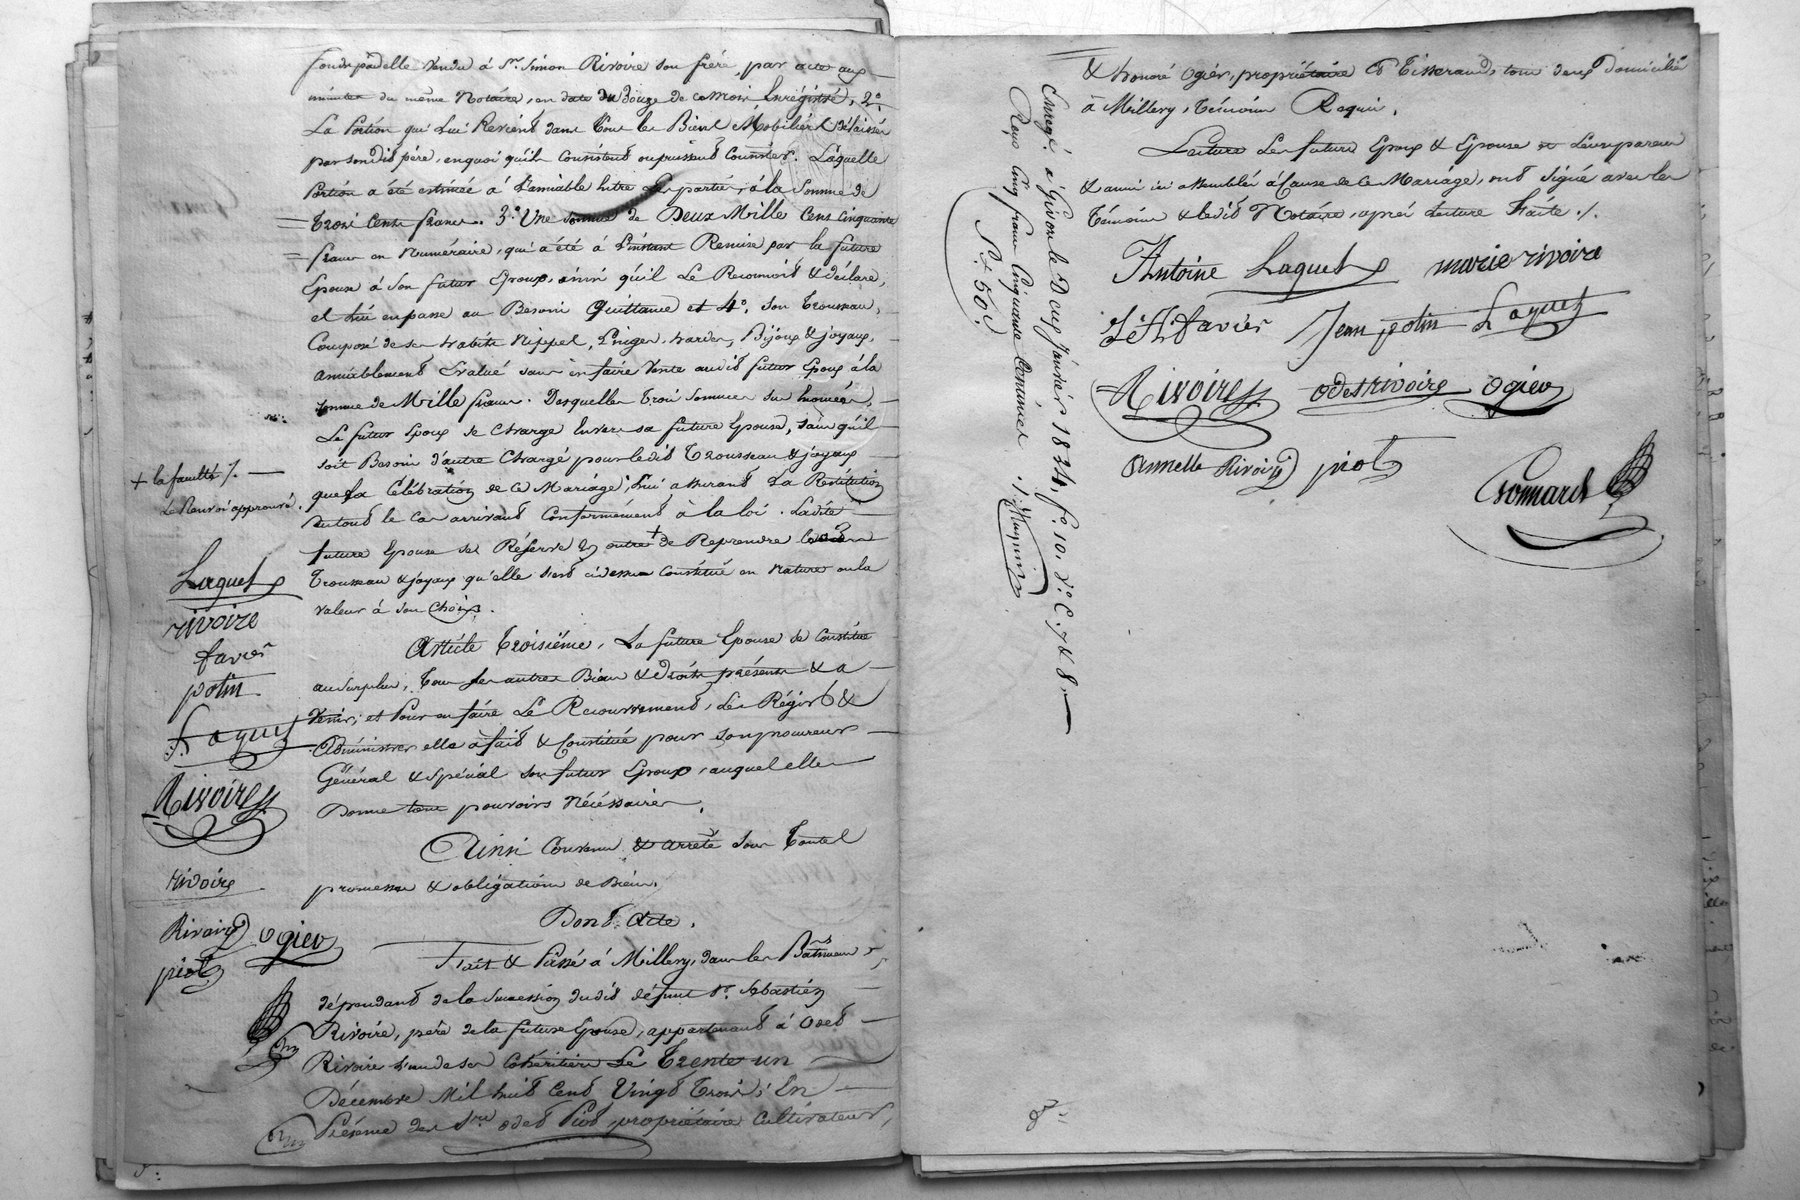 fonds par elle vendu à Sr. Simon Rivoire son frère, par acte aux
minutes du même Notaire, en date du douze de ce mois Enrégistré, 2o.
La Portion qui Lui Revient dans tous les Biens Mobiliers délaissés
par sondit père, en quoi qu'ils Consistent ou puissent Consister. Laquelle
Portion a été estimée à l'amiable Entre les parties, à la Somme de
trois Cents francs. 3o. Une somme de Deux Mille Cent Cinquante
francs en Numéraire, qui a été à l'instant Remise par la future
Epouse à son futur Epoux, ainsi qu'il Le Reconnoit & déclare,
et lui en passe au Besoin Quittance et 4o. son trousseau,
Composé de ses habits Nippes, Linges, hardes, Bijoux & joyaux,
amiablement Evalué sans en faire Vente audit futur Epoux à la
somme de Mille francs. Desquelles trois sommes sus
Le futur Epoux se Charge Envers sa future Epouse, sans qu'il
soit Besoin d'autre Charge pour ledit trousseau & joyaux
que la Célébration de ce Mariage, lui assurant La Restitution
du tout le cas arrivant Conformément à la loi. Ladite
future Epouse se Réserve en outre + de Reprendre
trousseau & joyaux qu'elle s'est ci dessus Constitué en Nature ou la
valeur à son Choix.
+ la faculté ./.
Le Renvoi approuvé.
Laquet
rivoire
favier
potin
J. Laquet
Rivoire
rivoire
Rivoire ogier
piot
Article troisième, La future Epouse se Constitue
au surplus, tous ses autres Biens & droits présents & a
Venir; et Pour en faire Le Recouvrement, Les Régir &
Administrer elle a fait & Constitué pour son procureur
Général & spécial son futur Epoux, auquel elle
Donne tous pouvoirs Nécéssaires.
Ainsi Convenu & arrêté sous toutes
promesses & obligations de Biens.
Dont Acte.
Fait & Passé à Millery, dans les Bâtimens
dépendants de la Succession dudit défunt Sr. Sebastien
Rivoire, père de la future Epouse, appartenant à Odet
Rivoire l'un de ses Cohéritiers Le Trente un
Décembre Mil huit Cent Vingt trois; En
Présence des Srs. Odet Piot, propriétaire Cultivateur,
& honoré Ogier, propriétaire & Tisserand, tous deux domiciliés
à Millery, témoins Requis.
Lecture Les futurs Epoux & Epouse & Leurs parens
& amis ici assemblés à Cause de ce Mariage, ont signé avec les
témoins & ledit Notaire, après Lecture Faite ./.
Antoine Laquet marie rivoire
favier Jean potin Laquet
Rivoire odet rivoire ogier
annette Rivoire piot
Enregé. à Givors le Deux Janvier 1824, fo. 10. Vo. C. 7 & 8.
Reçu Cinq francs Cinquante Centimes ./.
5 f 50 c